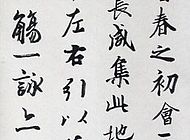 春之初會
長咸集此地
左右引以
觴一詠